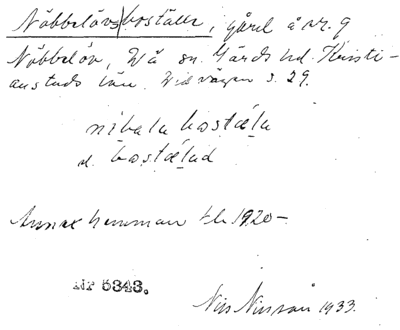 Nöbbelövs|boställe, gård å nr. 9
Nöbbelöv, Wä sn. Gärds hd. Kristi-
anstads län. Wid vägen s. 29.
nibala bostæla
d. bostælad
Annex hemman till 1920-
MP 5343.
Nils Nilsson 1933.